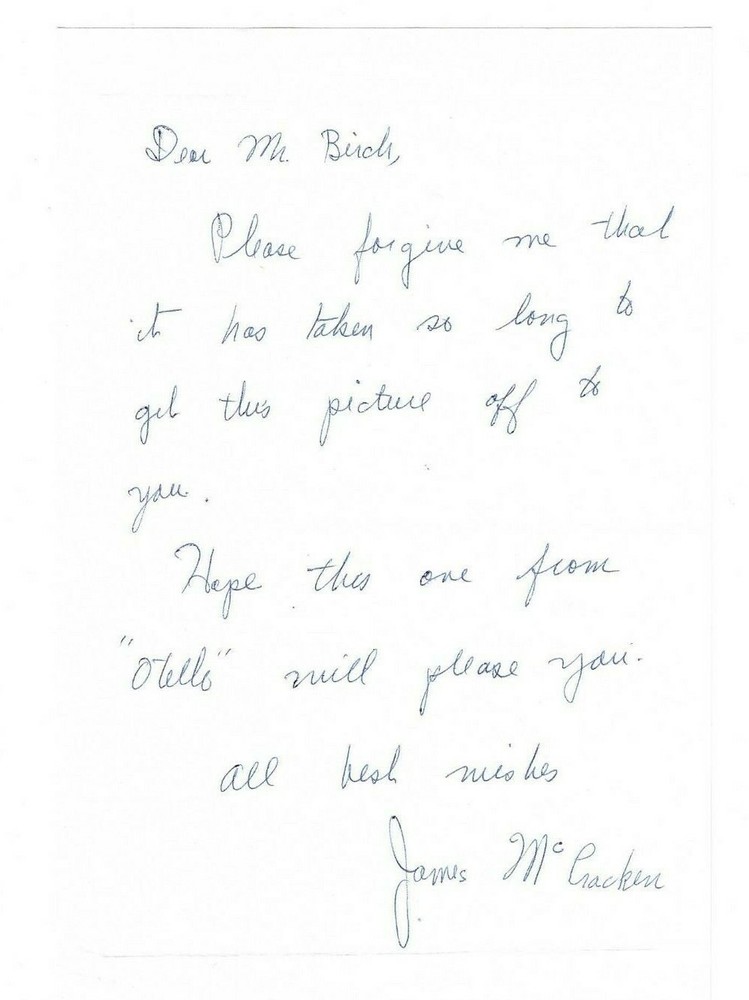 Dear Mr. Birch,
Please forgive me that
it has taken so long to
get this picture off to
you.
Hope this one from
"Otello" will please you.
All best wishes
James McCracken